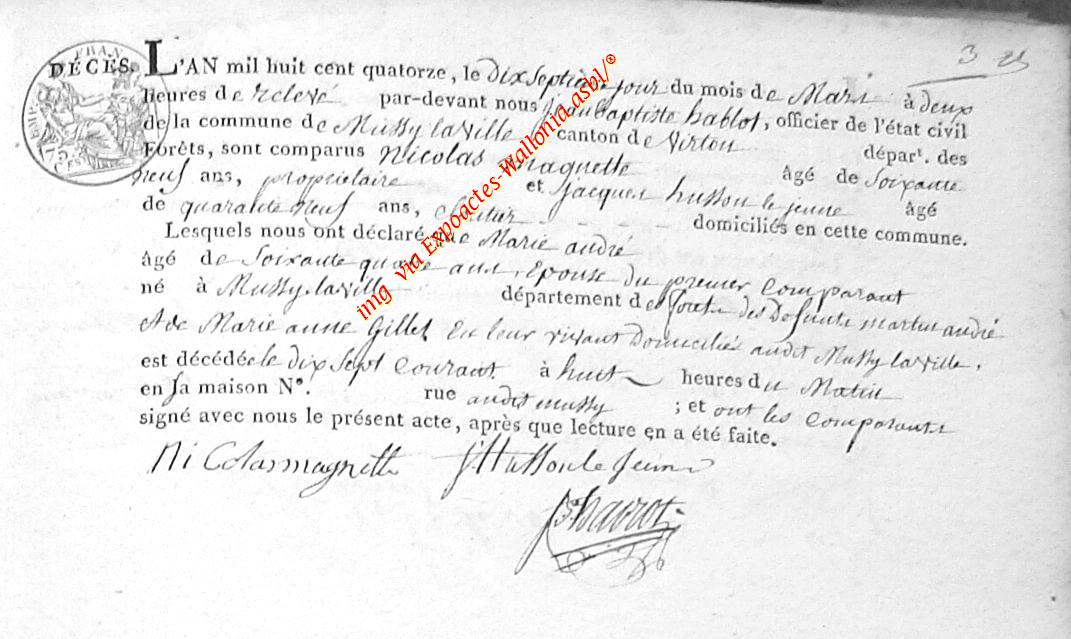 3 25
FRAN
DÉCÈS. L'AN mil huit cent quatorze, le dix Septieme jour du mois de Mars à deux
heures de relevé par-devant nous Jean Baptiste hablot, officier de l'état civil
de la commune de Mussy la ville canton de Virton départ. des
Forêts, sont comparus Nicolas Magnette âgé de Soixante
neuf ans, propriétaire et Jacques husson le jeune âgé
de quarante neuf ans, domiciliés en cette commune.
Lesquels nous ont déclaré que Marie andré
âgé de Soixante quatre ans, Epouse du premier Comparant
né à Mussy-la-ville département des forêts des Defunts martin andré
et de Marie anne Gillet en leur vivant Domiciliés audit Mussy la ville,
est décédée le dix Sept Courant à huit heures du Matin
en sa maison N°. rue audit mussy ; et ont les comparants
signé avec nous le présent acte, après que lecture en a été faite.
Nicolas magnette J Husson le Jeune
img via Expoactes-Wallonia.asbl/®